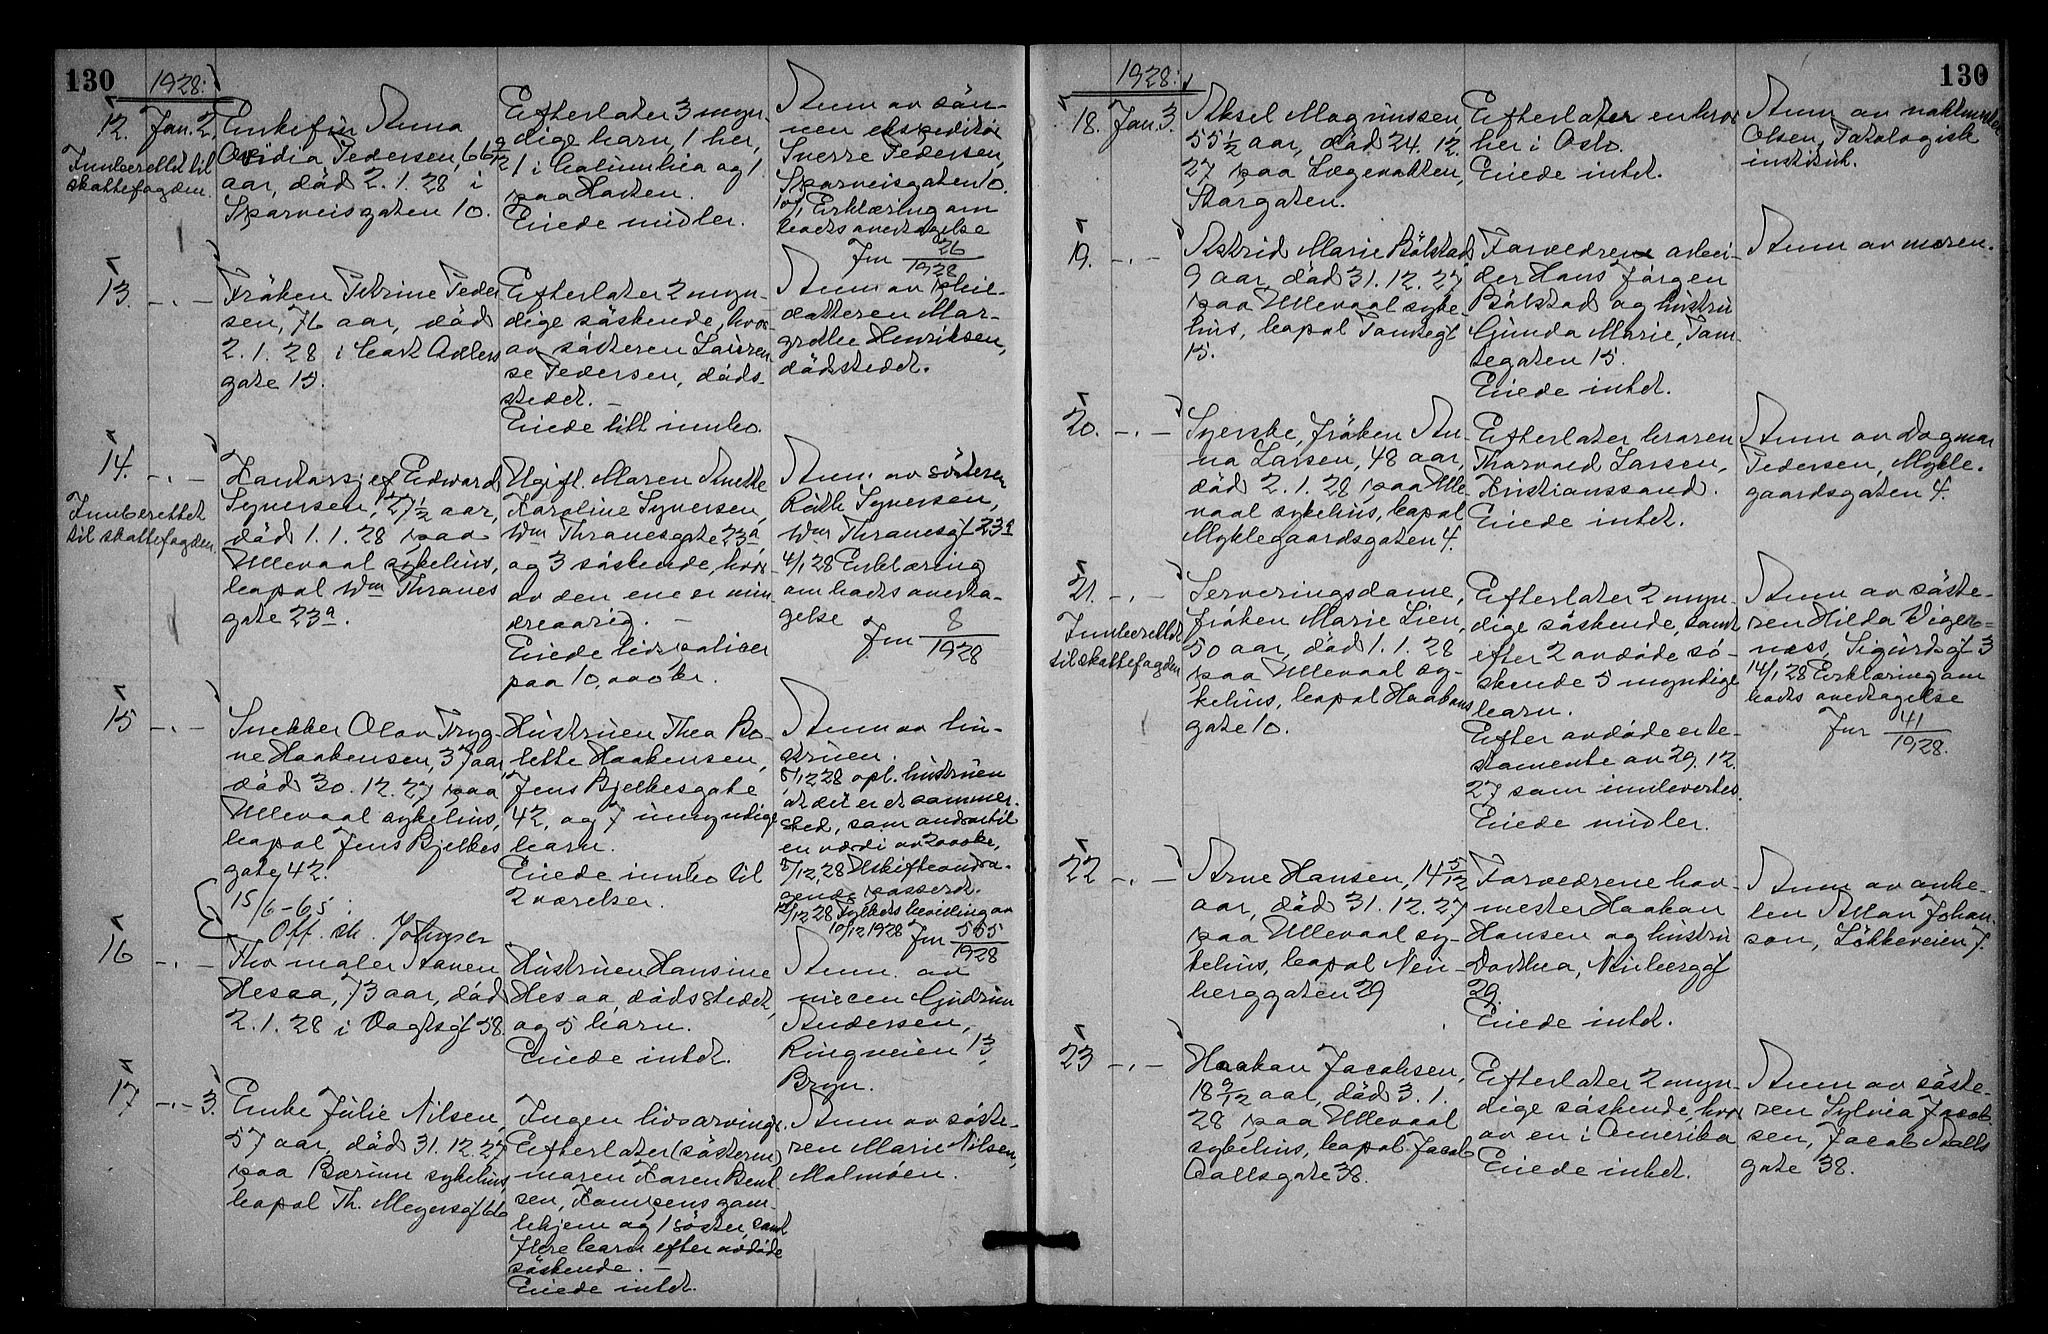 130
1928:
12. Jan. 2.
Innberettet til
skattefogden.
Enkefru Anna
Ovidia Pedersen, 66 9/12
aar, död 2.1.28 i
Sporveisgaten 10.
Efterlater 3 myn-
dige barn, 1 her,
1 i Columbia og 1
paa Hadten.
Eiede midler.
Anm. av sön-
nen ekspeditör
Sverre Pedersen,
Sporveisgaten 10.
10/1 Erklæring om
boets overtagelse
Jnr 26/1928
13. -"-
Fröken Petrine Peder
sen, 76 aar, död
2.1.28 i Cort Adlers
gate 15.
Efterlater 2 myn-
dige söskende, hvor-
av södteren Lauren-
se Pedersen, döds-
stedet. -
Eiede litt innbo.
Anm. av pleie-
datteren Mar-
grethe Henriksen,
dödsstedet.
14. -"-
Innberettet
til skattefogden.
Kontorsjef Edward
Syversen, 27 1/2 aar,
död 1.1.28 paa
Ullevaal sykehus,
bopal Wm Thranes
gate 23a.
Ugift. Moren Anette
Karoline Syversen,
Wm Thranesgate 23a
og 3 söskende, hvor-
av den ene er min-
dreaarig. -
Eiede livspoliser
paa 10,000 kr.
Anm. av sösteren
Ruth Syversen,
Wm Thranesgt 23a
4/1 28 Erklæring
om boets overta-
gelse
Jnr 8/1928
15 -"-
Snekker Olav Tryg-
ve Haakensen, 37 aar,
död 30.12.27 paa
Ullevaal sykehus,
bopal Jens Bjelkes
gate 42.
15/6-65
Off. sk. Johnsen
Hustruen Thea Bo-
lette Haakensen,
Jens Bjelkesgate
42, og 7 umyndige
barn.
Eiede innbo til
2 værelser.
Anm. av hu-
struen.
5/12 28 opl. hustruen
at det er et sommer-
sted, som andrar til
en værdi av 2000 kr,
5/12 28 Uskifteandra-
gende passert.
12/12 28 Fylkets bevilling av
10/12 1928 Jnr 565/1928
16 -"-
Fhv maler Hanen
Hesaa, 73 aar, död
2.1.28 i Vogtsgt 58.
Hustruen Hansine
Hesaa, dödsstedet,
og 5 barn.
Eiede intet.
Anm. av
niecen Gudrun
Andersen,
Ringveien 13,
Bryn.
17 -"- 3.
Enke Julie Nilsen,
57 aar, död 31.12.27
paa Bærum sykehus,
bopal Th. Meyersgt 66
Ingen livsarvinge.
Efterlater (sösteren)
moren Karen Bent
sen, Kampens gam-
lehjem og 1 söster, samt
flere barn efter avdöde
söskende. -
Eiede intet.
Anm. av söste-
ren Marie Nilsen,
Malmöen.
130
1928:
18. Jan. 3.
Aksel Magnussen,
55 1/2 aar, död 24.12.
27 paa Lægevakten,
Storgaten.
Efterlater en bror
her i Oslo.
Eiede intet.
Anm. av
Olsen, Patologisk
institut.
19. -"-
Astrid Marie Bölstad
9 aar, död 31.12.27
paa Ullevaal syke-
hus, bopal Tomtegt
15.
Forældrene arbei-
der Hans Jörgen
Bölstad og hustru
Gunda Marie, Tom-
tegaten 15.
Eiede intet.
Anm. av moren.
20. -"-
Syerske, fröken An-
na Larsen, 48 aar,
död 2.1.28 paa Ulle-
vaal sykehus, bopal
Myklegaardsgaten 4.
Efterlater broren
Thorvald Larsen,
Kristianssand.
Eiede intet.
Anm. av Dagmar
Pedersen, Mykle-
gaardsgaten 4.
21. -"-
Innberettet
til skattefogden
Serveringsdame,
fröken Marie Lien,
50 aar, död 1.1.28
paa Ullevaal sy-
kehus, bopal Haakons
gate 10.
Efterlater 2 myn-
dige söskende, samt
efter 2 avdöde sö-
skende 5 myndige
barn.
Efter avdöde er te-
stamente av 29.12.
27 som innlevertes.
Eiede midler.
Anm. av söste-
ren Hilda Viger-
næss, Sigurdsgt 3
14/1 28 Erklæring om
boets overtagelse
Jnr 41/1928.
22 -"-
Arne Hansen, 14 5/12
aar, död 31.12.27
paa Ullevaal sy-
kehus, bopal Neu-
berggaten 29
Forældrene hov-
mester Haakon
Hansen og hustru
Dorthea, Neuberggt
29.
Eiede intet.
Anm. av onke-
len Allan Johan-
son, Lökkeveien 7.
23 -"-
Haakon Jacobsen,
18 9/12 aar, död 3.1.
28 paa Ullevaal
sykehus, bopal Jacob
Aallsgate 38.
Efterlater 2 myn-
dige söskende, hvor
av en i Amerika
Eiede intet.
Anm. av söste-
ren Sylvia Jacob-
sen, Jacob Aalls
gate 38.